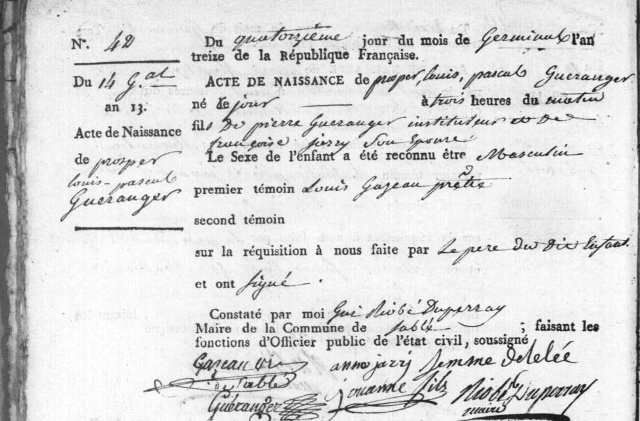 N°. 42
Du 14 G.al
an 13.
Acte de Naissance
de prosper
louis-pascal
Guéranger
Du quatorzième jour du mois de Germinal l'an
treize de la République Française.
ACTE DE NAISSANCE de prosper, louis, pascal Guéranger
né le jour à trois heures du matin
fils De pierre Guéranger instituteur et de
françoise jarry Son Epouse
Le Sexe de l'enfant a été reconnu être Masculin
premier témoin Louis Gazeau prêtre
second témoin
sur la réquisition à nous faite par Le pere du dit Enfant
et ont signé
Constaté par moi Gui Riobé Duperray
Maire de la Commune de sablé ; faisant les
fonctions d'Officier public de l'état civil, soussigné
Gazeau
de sablé
anne jarry femme
jouande fils
Guéranger
Riobé Duperray
maire